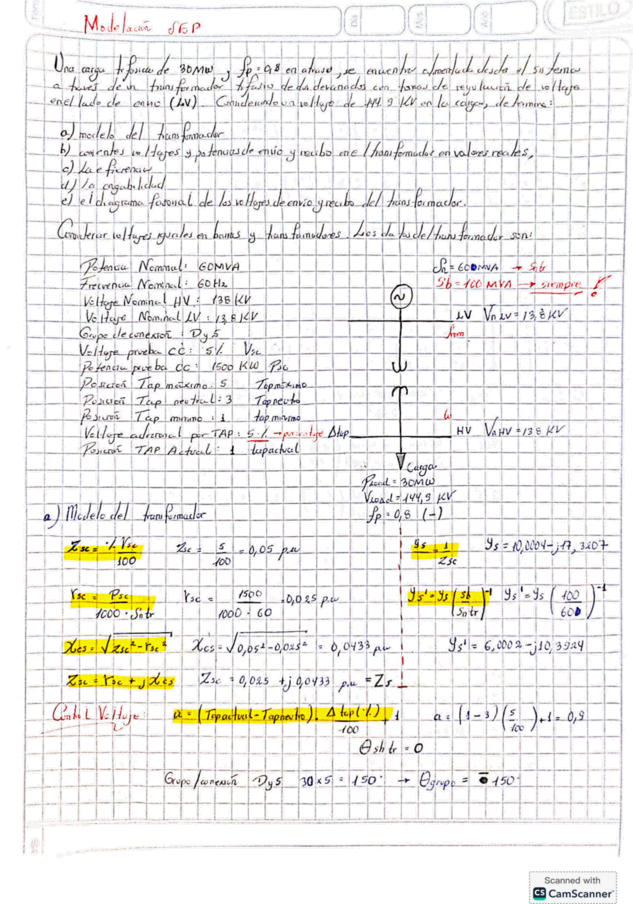 ESTILO
Día
Mes
Año
Modelación SEP
Una carga trifásica de 30MW y fp=0,8 en atraso, se encuentra alimentada desde el sistema
a través de un transformador trifásico de dos devanados con tomas de regulación de voltaje
en el lado de envio (LV). Considerando un voltaje de 144.9 KV en la carga, determine:
a) modelo del transformador
b) corrientes voltajes y potencias de envio y recibo en el transformador en valores reales,
c) La eficiencia
d) la cargabilidad
e) el diagrama fasorial de los voltajes de envio y recibo del transformador.
Considerar voltajes iguales en barras y transformadores. Los datos del transformador son:
Potencia Nominal: 60MVA
Frecuencia Nominal: 60Hz
Voltaje Nominal HV: 138KV
Voltaje Nominal LV: 13,8KV
Grupo de conexión: Dy5
Voltaje prueba CC: 5% Vsc
Potencia prueba CC: 1500 KW Psc
Posición Tap máximo: 5 Tapmáximo
Posición Tap neutral: 3 Tapneutro
Posición Tap minimo: 1 tapminimo
Voltaje adicional por TAP: 5% → porcentaje Δtap
Posición TAP Actual: 1 tapactual
Sn = 600MVA → Sntr
Sb = 100 MVA → siempre !
LV Vn LV = 13,8 KV
HV VnHV = 138 KV
Carga
Pload = 30MW
Vload = 144,9 KV
fp = 0,8 (-)
a) Modelo del transformador
Zsc = % Vsc / 100 Zsc = 5 / 100 = 0,05 p.u
ys = 1 / Zsc ys = 10,0004 - j17,3207
rsc = Psc / 1000 · Sntr rsc = 1500 / 1000 · 60 = 0,025 p.u
ys' = ys (sb / Sntr)^-1 ys' = ys (100 / 600)^-1
Xcs = √Zsc² - rsc² Xcs = √0,05² - 0,025² = 0,0433 p.u
ys' = 6,0002 - j10,3924
Zsc = rsc + j Xcs Zsc = 0,025 + j 0,0433 p.u = Zs
Control Voltaje: a = (Tapactual - Tapneutro) · Δtap(%) / 100 + 1 a = (1 - 3) (5 / 100) + 1 = 0,9
θshtr = 0
Grupo/conexión Dy5 30 x 5 = 150° → θgrupo = -150°
Scanned with
CS CamScanner